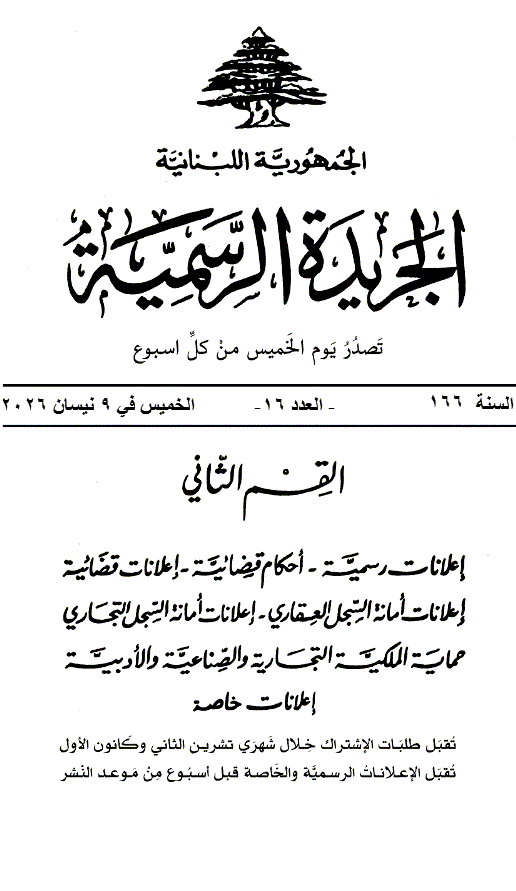 الجُمهُوريَّة اللبْنانيَّة
الجَريدَة الرسَّمِيَّة
تَصدُرُ يَوم الخَميس منْ كلِّ اسبوع
السنة ١٦٦ - العدد ١٦- الخميس في ٩ نيسان ٢٠٢٦
القِسْم الثّاني
إعلانات رسميَّة - أحكام قضائيَّة - إعلانات قضائية
إعلانات أمانة السّجل العقاري - إعلانات أمانة السّجل التجاري
حماية الملكيَّة التجارية والصّناعيَّة والأدبيَّة
إعلانات خاصة
تُقبَل طلبَات الإشتراك خِلال شَهرَي تشرين الثاني وكَانون الأول
تُقبَل الإعلاناتُ الرسميَّة والخَاصة قبل أسبُوع مِنْ مَوعد النَشر